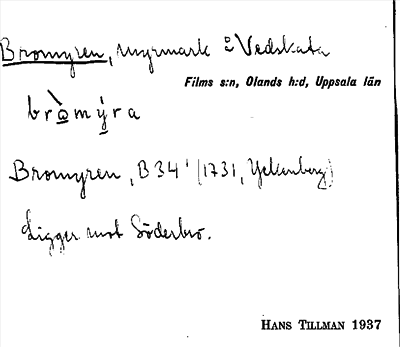 Bromyren, myrmark å Vedskata
Films s:n, Olands h:d, Uppsala län
bròmýra
Bromyren, B34' (1731, Yckenberg)
Ligger mot Söderbro.
HANS TILLMAN 1937